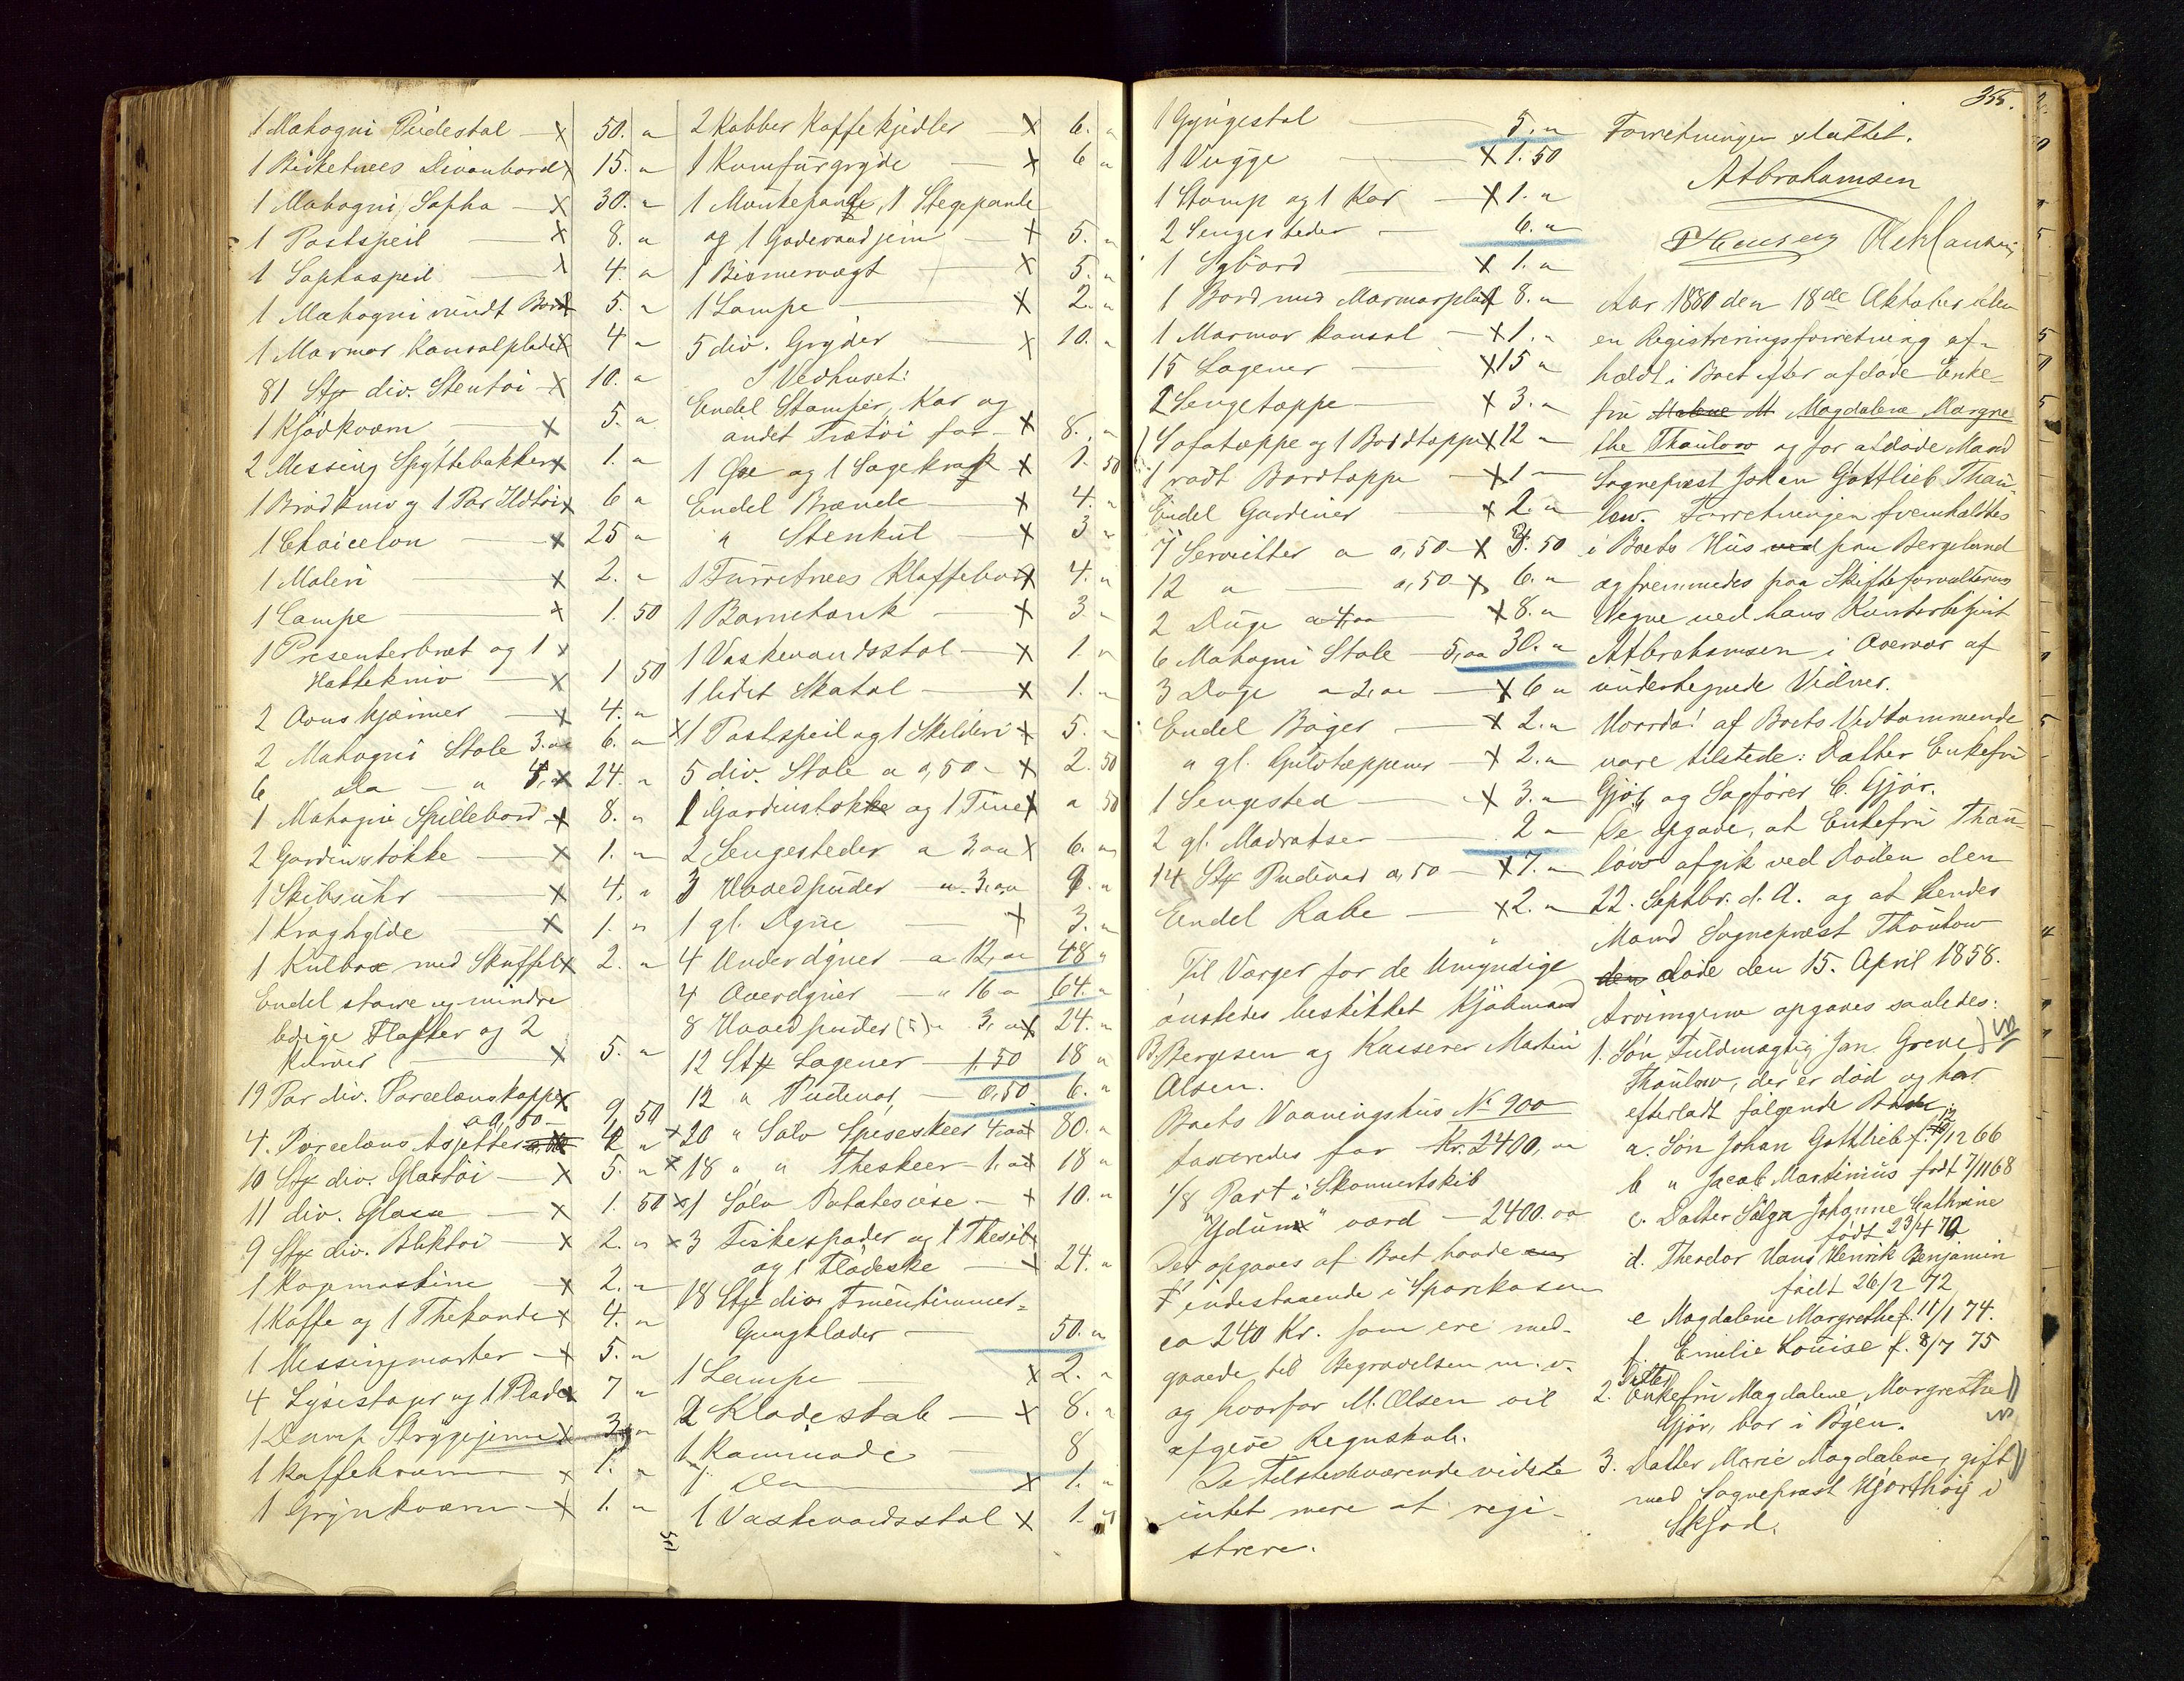 1 Mahogni Pudestol — x 50. „
1 Birketrees Divanbord x 15. „
1 Mahogni Sopha — x 30. „
1 Postspeil — x 8. „
1 Sophaspeil — x 4. „
1 Mahogni rundt Bord x 5. „
1 Marmor Konsolplade x 4 „
81 Stk div. Stentøi — x 10. „
1 Kjødkværn — x 5. „
2 Messing Spyttebakker x 1. „
1 Brødkniv og 1 Par Ildtøi x 6 „
1 Chaicelon — x 25 „
1 Maleri — x 2. „
1 Lampe — x 1. 50
1 Presenterbræt og 1 x
Hakkekniv — x 1 50
2 Ovnskjærmer — x 4. „
2 Mahogni Stole 3. „ 6. „
6 do — „ 4, x 24. „
1 Mahogni Spillebord x 8. „
2 Gardinstokke — x 1. „
1 Skibsuhr — x 4. „
1 Kraghylde — x 1. „
1 Kulboxe med Skuffel x 2. „
Endel større og mindre
ledige Flasker og 2
Kurver — x 5. „
19 Par div. Porcelænskopper x
a 0,50 — 9 50
4. Porcelæns Asjetter 2 „
10 Stk div. Glastøi — x 5. „
11 div. Glasse — x 1. 50
9 Stk div. Bliktøi — x 2. „
1 Kopmaskine — x 2. „
1 Kaffe og 1 Thekande x 4. „
1 Messingmorter — x 5. „
4 Lysestager og 1 Plade x 7 „
1 Damp Strygejern x 3. „
1 Kaffebrænder x 1. „
1 Grynkværn — x 1. „
2 Kobber Kaffekjedler x 6. „
1 Komfurgryde — x 6 „
1 Munkepande, 1 Stegepande
og 1 Goderaadjern — x 5. „
1 Bismervægt — x 5. „
1 Lampe — x 2. „
5 div. Gryder — x 10. „
I Vedhuset:
Endel Stamper, Kar og
andet Trætøi for — x 8. „
1 Øxe og 1 Sagekrak x 1. 50
Endel Brænde — x 4. „
„ Stenkul — x 3 „
1 Furretrees Klaffebord x 4. „
1 Barnebænk — x 3. „
1 Vaskevandsstol — x 1. „
1 lidet Skatol — x 1. „
x 1 Postspeil og 1 Skilderi x 5. „
5 div. Stole a 0,50 — x 2. 50
1 Gardinstokke og 1 Tine x „ 50
2 Sengesteder a 3,00 x 6. „
3 Hovedpuder — a 3,00 9. „
1 gl. Dyne — x 3. „
4 Underdyner — a 12,00 48 „
4 Overdyner — „ 16 „ 64. „
8 Hovedpuder (5) „ 3, „ x 24. „
12 Stk Lagener — 1,50 18 „
12 „ Pudevar — 0,50 6. „
x 20 „ Sølv Spiseskeer 4,00 x 80. „
x 18 „ „ Theskeer — 1,00 x 18 „
x 1 Sølv Potatesøse — x 10. „
x 3 Fiskespader og 1 Thesil
og 1 Flødeske — x 24. „
18 Stk div. Fruentimmer-
Gangklæder — 50. „
1 Lampe — x 2. „
2 Klædeskab — x 8. „
1 Kommode — 8
1 Do — x 1. „
1 Vaskevandsstol x 1. „
1 Gyngestol — 5. „
1 Vugge — x 1. 50
1 Stamp og 1 Kar — x 1. „
2 Sengesteder — 6. „
1 Sybord — x 1. „
1 Bord med Marmorplade x 8. „
1 Marmor Konsol — x 1. „
15 Lagener — x 15 „
2 Sengetæppe — x 3. „
1 Sofatæppe og 1 Bordtæppe x 12 „
1 rødt Bordtæppe — x 1 „
Endel Gardiner — x 2. „
7 Servietter a 0,50 — x 3. 50
12 „ — 0,50 x 6. „
2 Duge a 4,00 — x 8. „
6 Mahogni Stole — 5,00 30. „
3 Duge a 2,00 — x 6 „
Endel Bøger — x 2. „
„ gl. Gulvtæpper — x 2. „
1 Sengested — x 3. „
2 gl. Madratser — 2 „
14 Stk Pudevar 0,50 — x 7. „
Endel Røbe — x 2. „
Til Værger for de Umyndige
ønskedes beskikket Kjøbmand
B. Bergesen og Kasserer Martin
Olsen.
Boets Vaaningshus No 900
taxeredes for Kr. 2400, „
1/8 Part i Skonnertskib
"Ydun" værd — 2400. 00
Det opgaves af Boet havde
indestaaende i Sparekassen
ca 240 Kr. som ere med-
gaaede til Begravelsen m. v.
og hvorfor M. Olsen vil
afgive Regnskab.
De Tilstedeværende vidste
intet mere at regi-
strere.
355.
Forretningen sluttet.
A Abrahamsen
Aar 1880 den 18de Oktober blev
en Registreringsforretning af-
holdt i Boet efter afdøde Enke-
fru Malene M Magdalene Margre
the Thaulow og før afdøde Mand
Sognepræst Johan Gottlieb Thau-
low. Forretningen foretoges
i Boets Hus ved paa Bergeland
og fremmedes paa Skifteforvalterens
Vegne ved hans Kontorbetjent
A Abrahamsen i Overvær af
undertegnede Vidner.
Hvorda! af Boets Vedkommende
vare tilstede: Datter Enkefru
Gjør, og Sagfører C. Gjør.
De opgave, at Enkefru Thau-
low afgik ved Døden den
22. Septbr. d. A. og at hendes
Mand Sognepræst Thaulow
den døde den 15. April 1858.
Arvingerne opgaves saaledes:
1. Søn Fuldmægtig Jan Greve
Thaulow, der er død og har
efterladt følgende Børn:
a. Søn Johan Gottlieb f. /12 66
b „ Jacob Martinius født 7/11 68
c. Datter Helga Johanne Cathrine
født 23/4 70
d. Theodor Hans Henrik Benjamin
født 26/2 72
e Magdalene Margrethe f. 11/1 74.
f. Emilie Louise f. 8/7 75
Datter
2. Enkefru Magdalene Margrethe
Gjør, bor i Byen.
3. Datter Marie Magdalene, gift
med Sognepræst Hjorthøy i
Skjod.